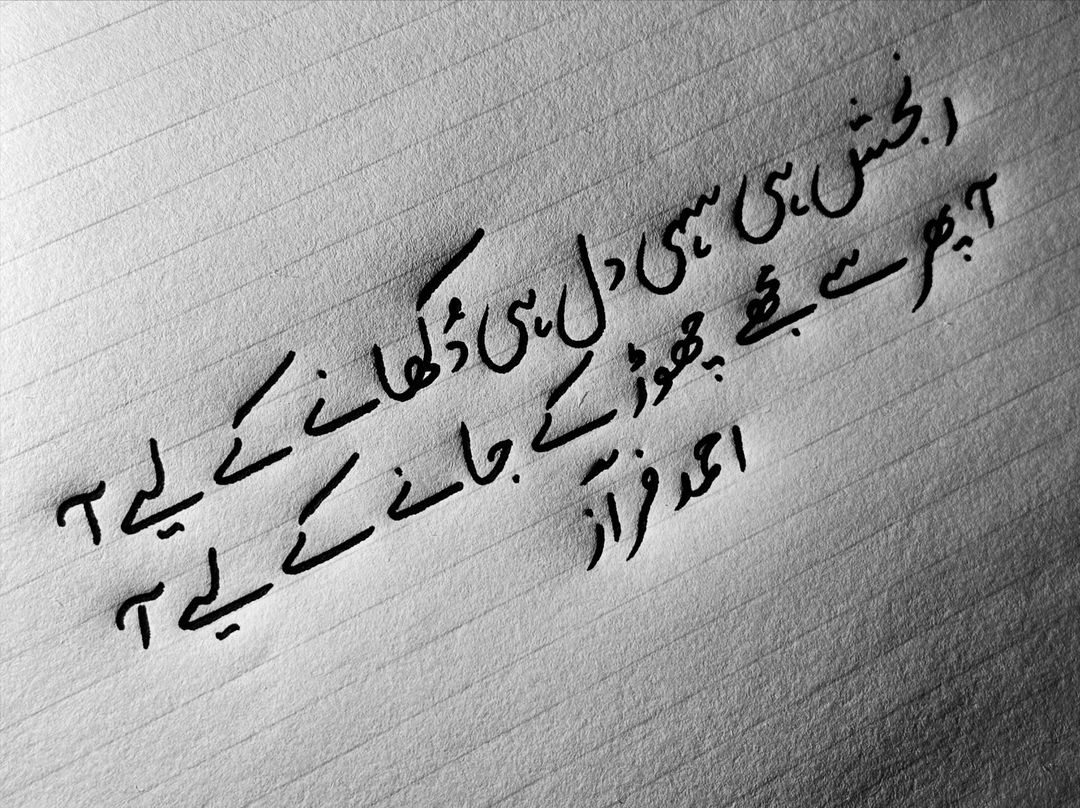 رنجش ہی سہی دل ہی دُکھانے کے لیے آ
آ پھر سے مجھے چھوڑ کے جانے کے لیے آ
احمد فرازؔ